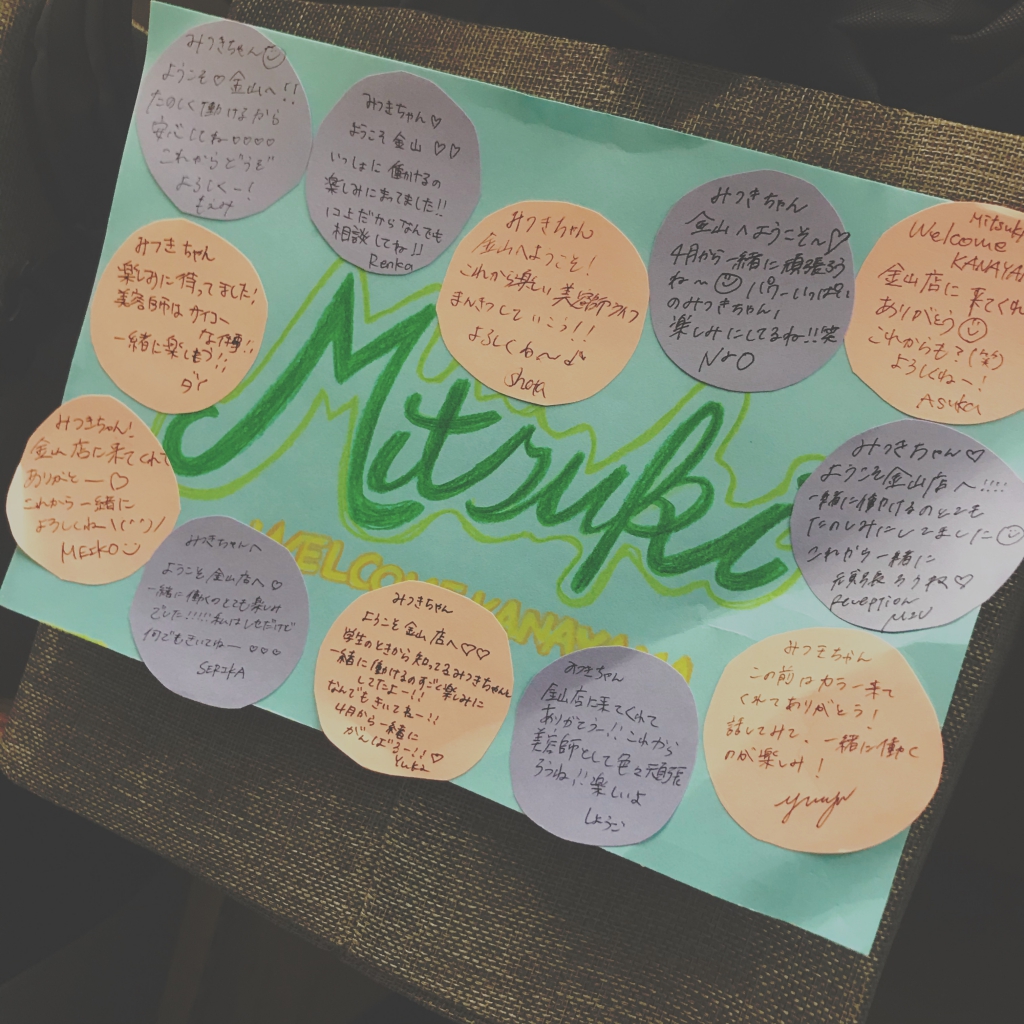 みつきちゃん
ようこそ♡金山へ!!
たのしく働けるから
安心してね♡♡♡♡
これからどうぞ
よろしくー!
もえみ
みつきちゃん♡
ようこそ金山♡♡
いっしょに働けるの
楽しみにまってました!!
に上だからなんでも
相談してね!!
Renka
みつきちゃん
金山へようこそ!
これから楽しい美容師ライフ
まんきつしていこう!!
よろしくね〜♪
shota
みつきちゃん
金山へようこそ〜♡
4月から一緒に頑張ろう
ね〜☺パワーいっぱい
のみつきちゃん!
楽しみにしてるね!!笑
NaO
Mitsuki
Welcome
KANAYAM
金山店に来てくれ
ありがとう☺
これからも?(笑)
よろしくねー!
Asuka
みつきちゃん
楽しみに待ってました!
美容師はサイコー
な仕事!!
一緒に楽しもう!!
ダイ
Mitsuki
WELCOME KANAYAMA
みつきちゃん!
金山店に来てくれて
ありがとー♡
これから一緒に
よろしくねー\(^^)/
MEIKO
みつきちゃん♡
ようこそ金山店へ!!!!
一緒に働けるのとても
たのしみにしてました☺
これから一緒に
頑張ろうネ♡
Reception
みつきちゃんへ
ようこそ金山店へ♡
一緒に働くのとても楽しみ
でした!!!!私はしせだけど
何でもきいてねー♡♡♡
SERIKA
みつきちゃん
ようこそ金山店へ♡♡
学生のときから知ってるみつきちゃんと
一緒に働けるのすごく楽しみに
してたよー!!
なんでもきいてねー!!
4月から一緒に
がんばろー!!♡
Yuka
みつきちゃん
金山店に来てくれて
ありがとうー!!これから
美容師として色々頑張
ろうね!!楽しいよ
しょうご
みつきちゃん
この前はカラー来て
くれてありがとう!
話してみて、一緒に働く
のが楽しみ!